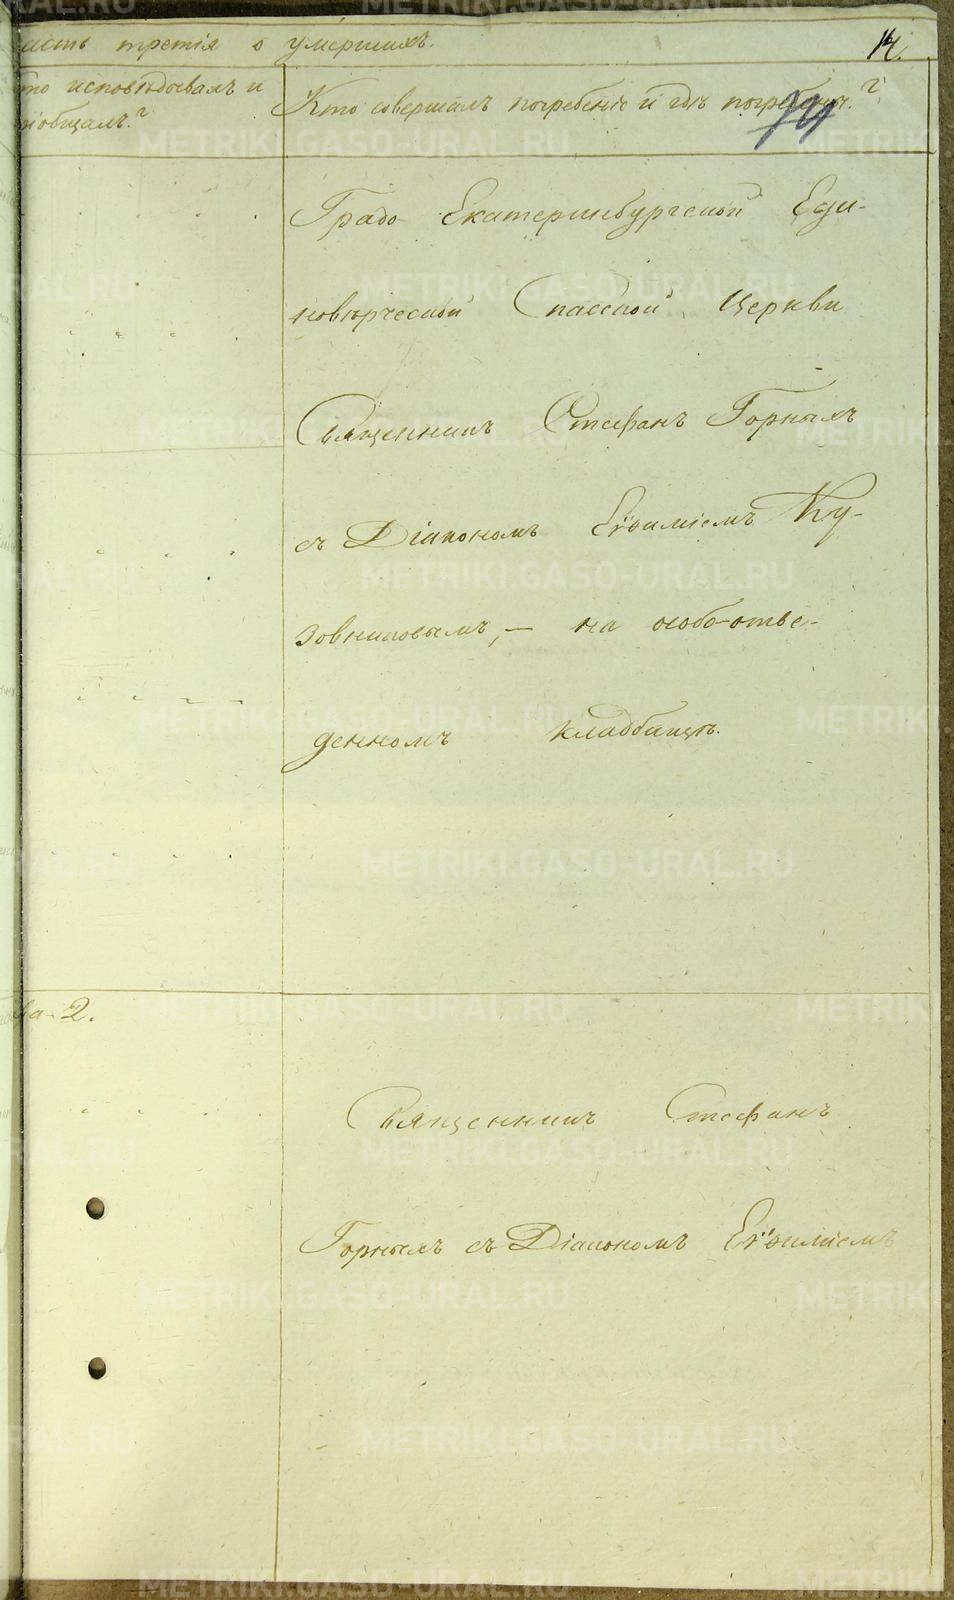 асть третія о умершихъ. 14.
то исповѣдывалъ и
ріобщалъ?
Кто совершалъ погребеніе и гдѣ погребены?
Градо Екатеринбургской Еди-
новѣрческой Спасской Церкви
Священникъ Стефанъ Горныхъ
съ Діакономъ Еѵѳиміемъ Ку-
зовниковымъ, — на особо-отве-
денномъ кладбищѣ.
ва 2.
Священникъ Стефанъ
Горныхъ съ Діакономъ Еѵѳиміемъ
METRIKI.GASO-URAL.RU